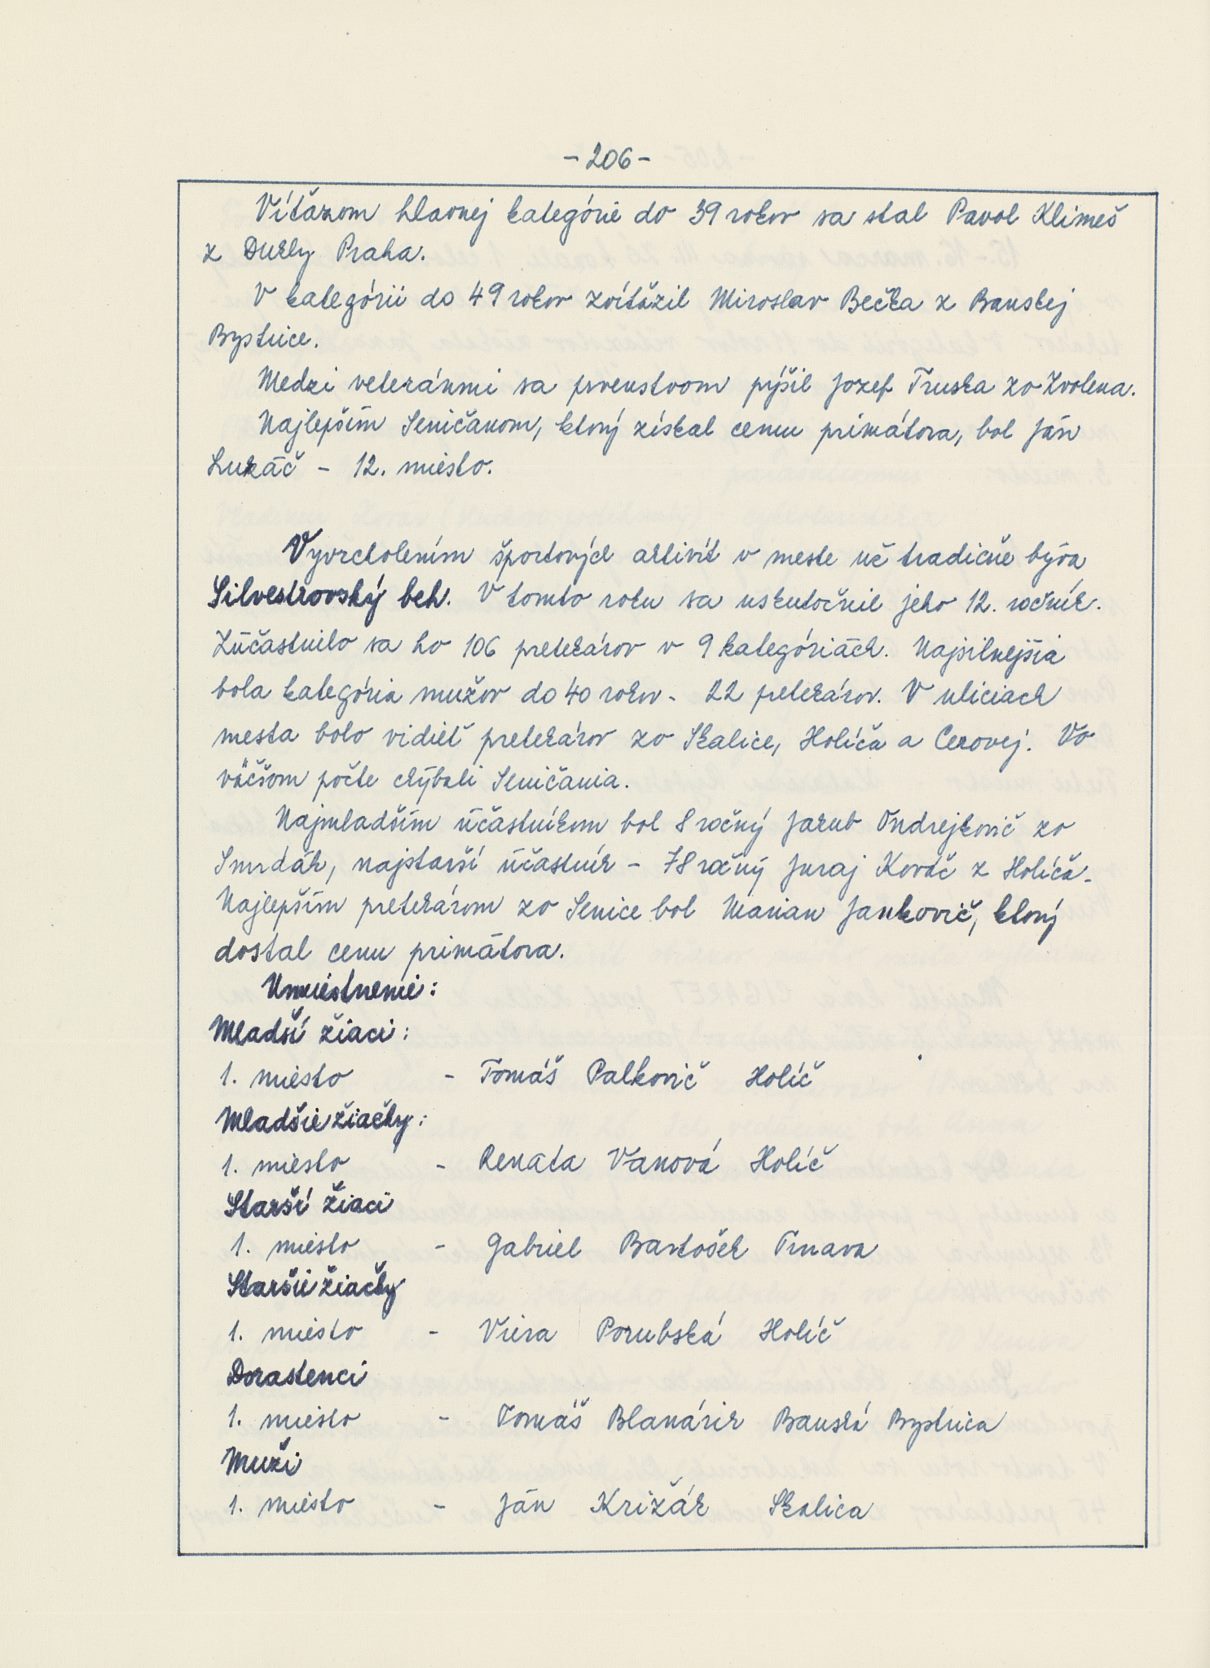 -206-
Víťazom hlavnej kategórie do 39 rokov sa stal Pavol Klimeš
z Dukly Praha.
V kategórii do 49 rokov zvíťazil Miroslav Bečka z Banskej
Bystrice.
Medzi veteránmi sa prvenstvom pýšil Jozef Truska zo Zvolena.
Najlepším Seničanom, ktorý získal cenu primátora, bol Ján
Lukáč - 12. miesto.
Vyvrcholením športových aktivít v meste už tradične býva
Silvestrovský beh. V tomto roku sa uskutočnil jeho 12. ročník.
Zúčastnilo sa ho 106 pretekárov v 9 kategóriách. Najsilnejšia
bola kategória mužov do 40 rokov - 22 pretekárov. V uliciach
mesta bolo vidieť pretekárov zo Skalice, Holíča a Cerovej. Vo
väčšom počte chýbali Seničania.
Najmladším účastníkom bol 8 ročný Jakub Ondrejkovič zo
Smrdák, najstarší účastník - 78 ročný Juraj Kováč z Holíča.
Najlepším pretekárom zo Senice bol Marian Jankovič, ktorý
dostal cenu primátora.
Umiestnenie:
Mladší žiaci:
1. miesto - Tomáš Palkovič Holíč
Mladšie žiačky:
1. miesto - Renata Vanová Holíč
Starší žiaci
1. miesto - Gabriel Bartošek Trnava
Staršie žiačky
1. miesto - Viera Porubská Holíč
Dorastenci
1. miesto - Tomáš Blanárik Banská Bystrica
Muži
1. miesto - Ján Križák Skalica